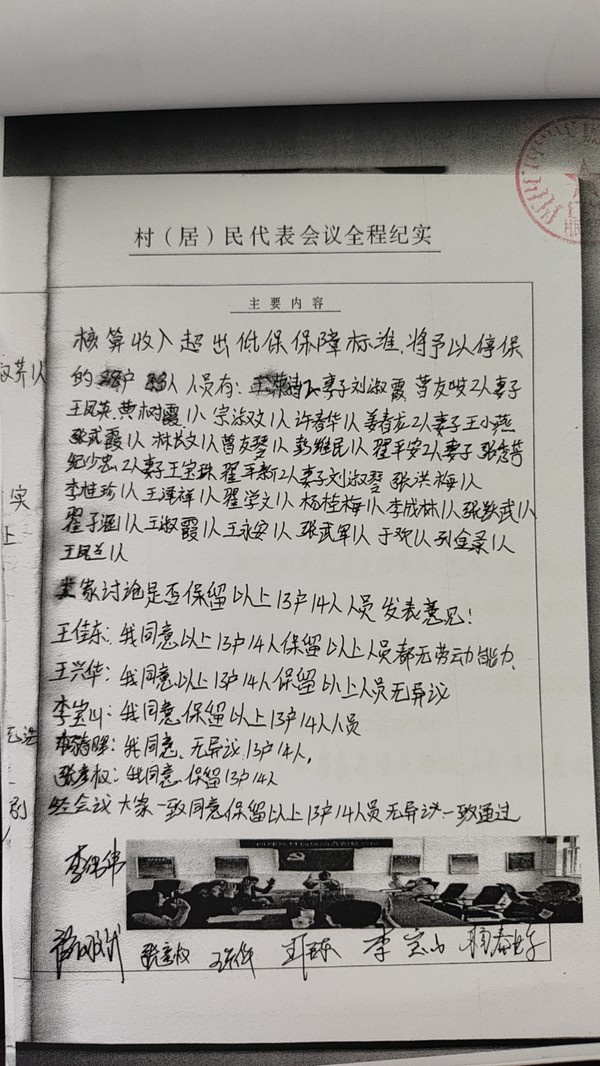 村（居）民代表会议全程纪实
主要内容
核算收入超出低保保障标准.将予以停保
的 户 人人员有: 人妻子刘淑霞 曹友 2人妻子
王凤英.黄树霞1人 宗淑 1人许春华1人姜春龙2人妻子王小燕
张武霞1人 林 文1人曹友琴1人 彭维民1人 翟平安2人妻子
纪少忠2人妻子王宝珠翟平新2人妻子刘淑琴 张洪梅1人
李桂珍1人王泽祥1人翟学文1人杨桂梅1人李成林1人张跃武1人
翟子涵1人王淑霞1人王永安1人张武军1人于欢1人孙金录1人
王凤兰1人
大家讨论是否保留以上13户14人人员发表意见:
王佳东: 我同意以上13户14人保留以上人员都无劳动能力.
王兴华: 我同意以上13户14人保留以上人员无异议
李宝山: 我同意保留以上13户14人人员
我同意.无异议.13户14人,
张彦权: 我同意.保留13户14人
经会议大家一致同意保留以上13户14人员无异议一致通过
李 伟
张彦权 李宝山
实
上